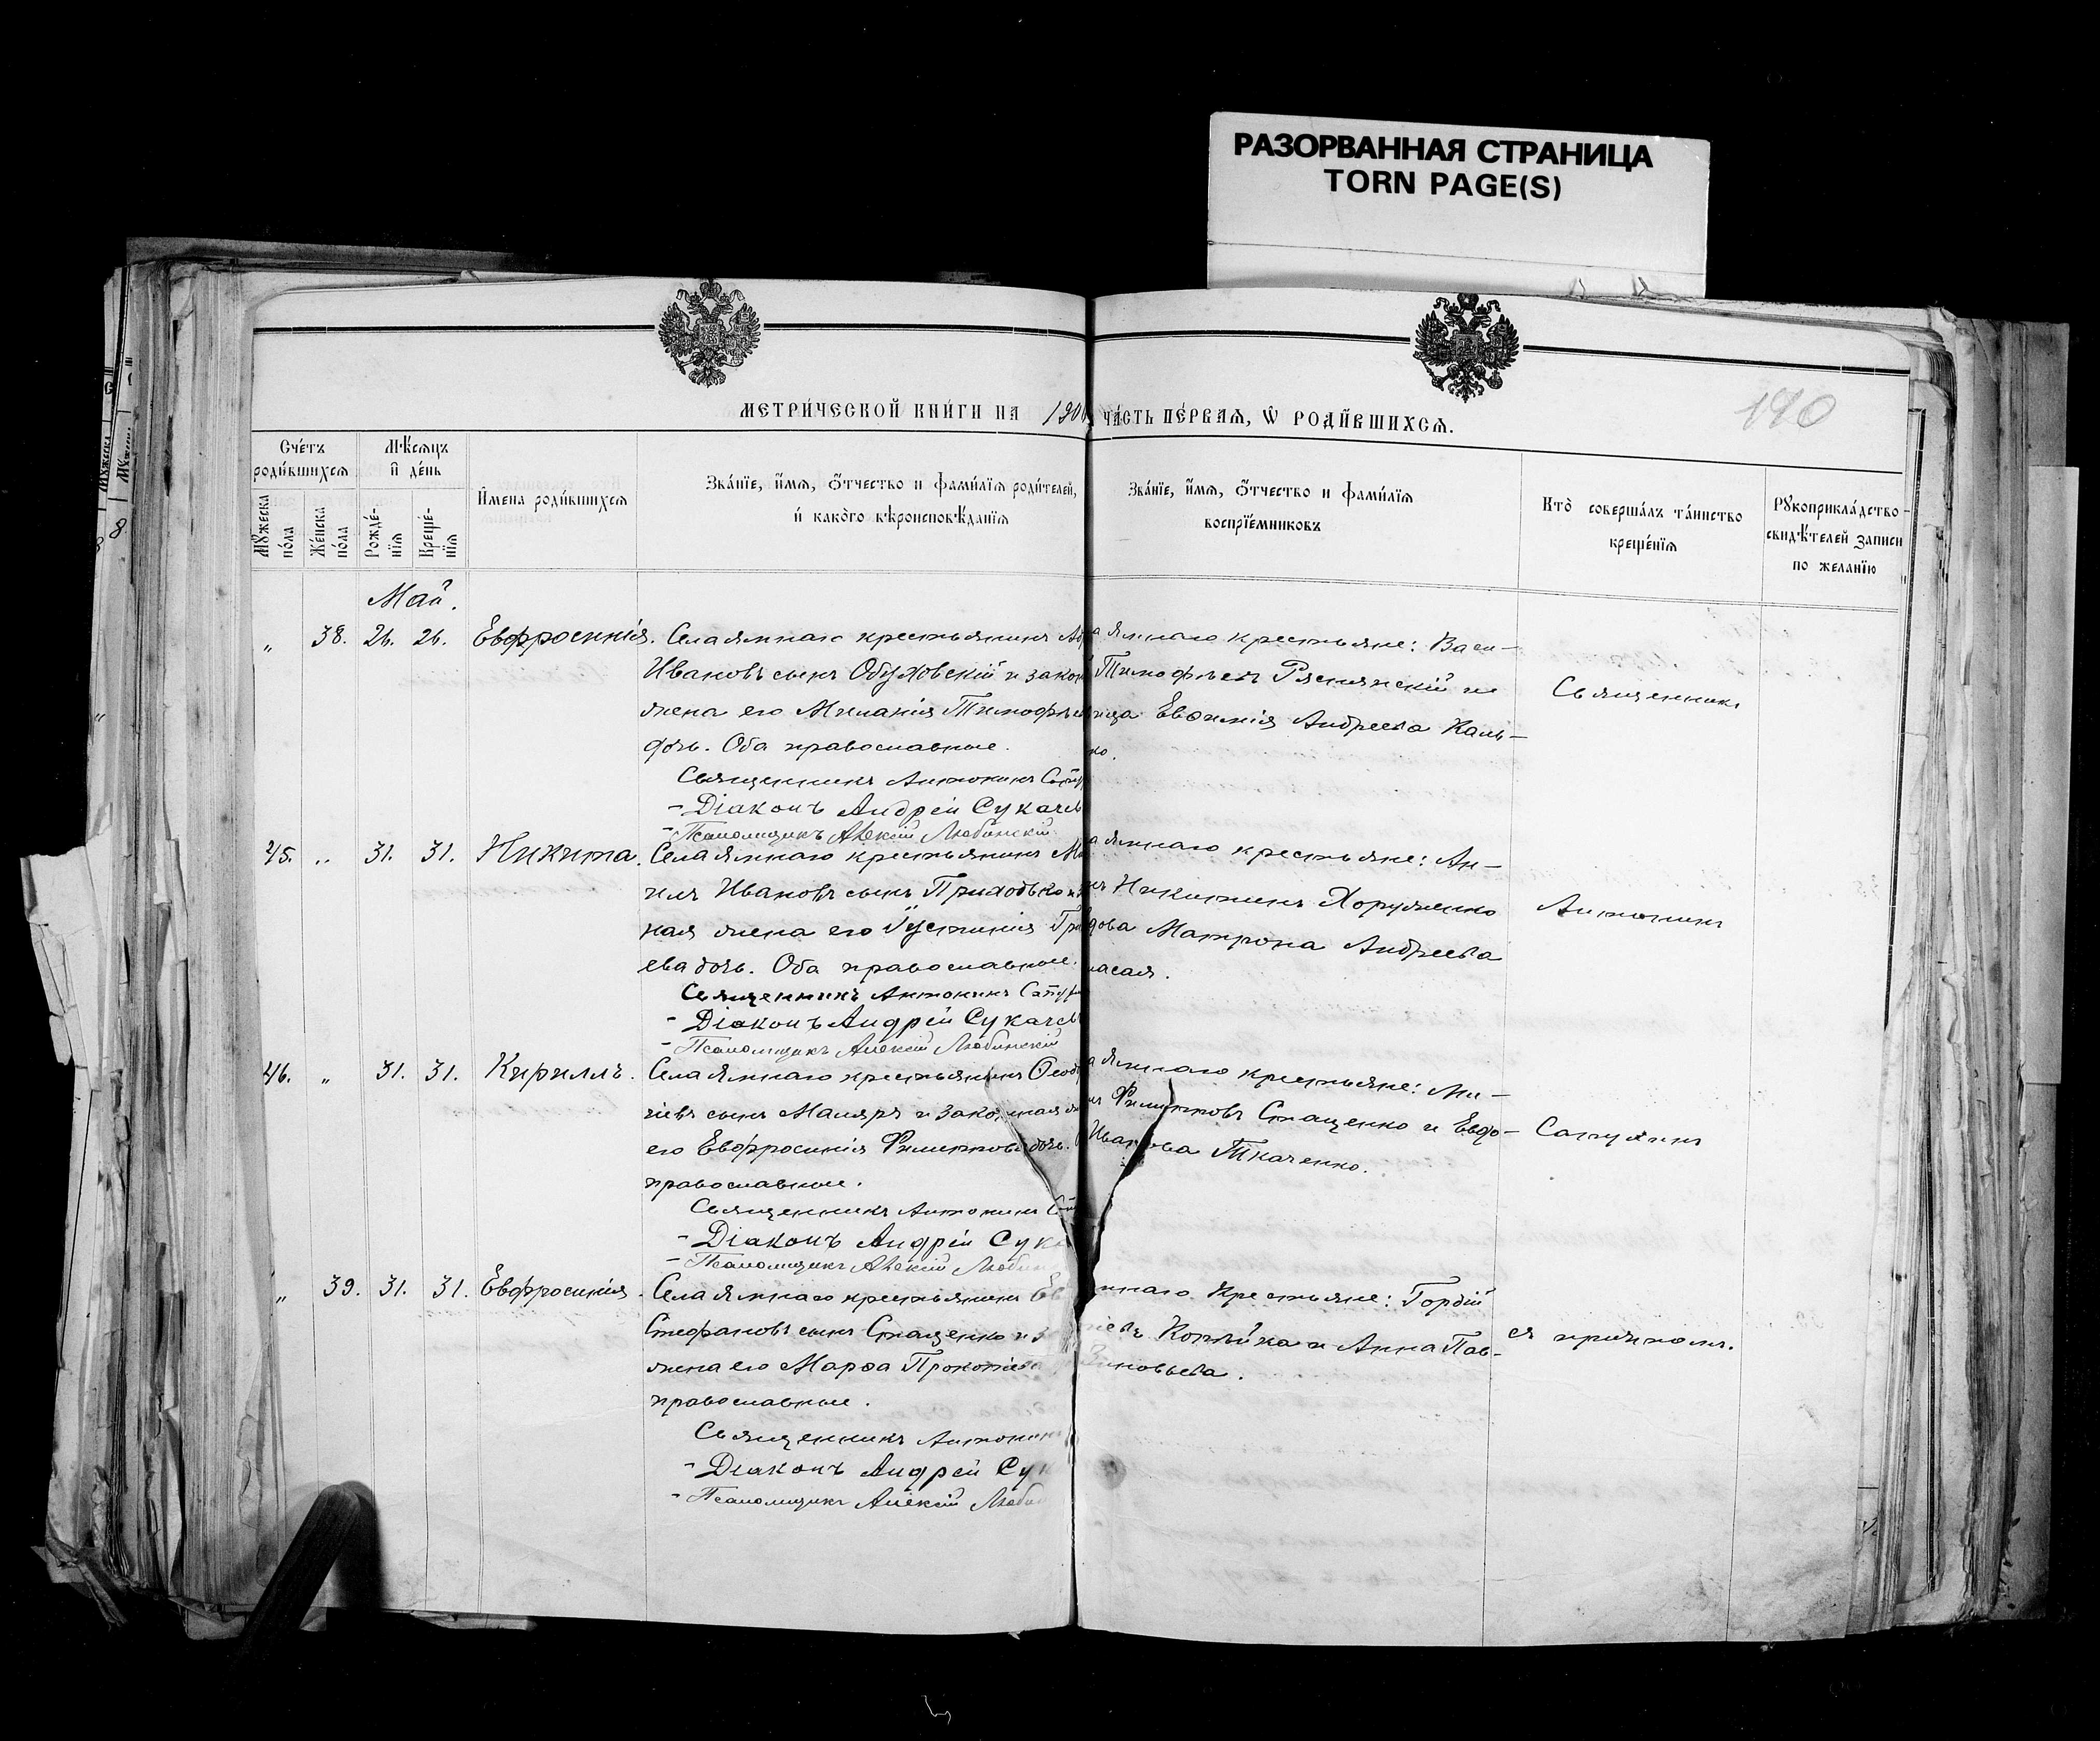 РАЗОРВАННАЯ СТРАНИЦА
TORN PAGE(S)
190
МЕТРИ́ЧЕСКОЙ КНИ́ГИ НА 190
ЧА́СТЬ ПЕ́РВАЯ, Ѡ РОДИ́ВШИХСЯ.
Сче́тъ роди́вшихся
Мѣ́сяцъ и де́нь
Мꙋжеска по́ла
Же́нска по́ла
Рожде́-нїя
Креще́-нїя
Имена роди́вшихся
Зва́нїе, и́мя, ѻ́тчество и фами́лїя роди́телей,
и како́го вѣроисповѣ́данїя
Зва́нїе, и́мя, ѻ́тчество и фами́лїя
воспрїе́мниковъ
Кто̀ соверша́лъ та́инство
креще́нїя
Рꙋкоприкла́дство
свидѣ́телей записи
по желанїю
Май.
„ 38. 26. 26. Евфросинія. Села Ямнаго крестьянинъ
Ивановъ сынъ Обуховскій и закон
жена его Меланія Тимофѣе
дочь. Оба православные.
Священникъ Антонинъ
- Діаконъ Андрей Сукачев
- Псаломщикъ Алексій Любинскій
а Ямнаго крестьяне: Васи-
Тимофѣевъ Ряснянскій и
Евѳимія Андреева Каль-
ко.
Священникъ
45. „ 31. 31. Никита. Села Ямнаго крестьянинъ
илъ Ивановъ сынъ Приходько и
ная жена его Густинія
ева дочь. Оба православные.
Священникъ Антонинъ
- Діаконъ Андрей Сукачев
- Псаломщикъ Алексій Любинскій
а Ямнаго крестьяне: Ан-
Никитинъ Хоруженко
дова Матрона Андреева
Антонинъ
46. „ 31. 31. Кириллъ. Села Ямнаго крестьянинъ Ѳеод
сынъ Маляръ и законная
его Евфросинія Филиппова дочь.
православные.
Священникъ Антонинъ
- Діаконъ Андрей Сука
- Псаломщикъ Алексій Любин
а Ямнаго крестьяне: Ми-
Филипповъ Стаценко и Евдо-
Иванова Ткаченко.
„ 39. 31. 31. Евфросинія. Села Ямнаго крестьянинъ
Стефановъ сынъ Стаценко и
жена его Марѳа Прокопіева
православные.
Священникъ Антонин
- Діаконъ Андрей Сук
- Псаломщикъ Алексій Любин
мнаго крестьяне: Гордій
Копѣйка и Анна Пав-
Зиновьева.
съ причтомъ.